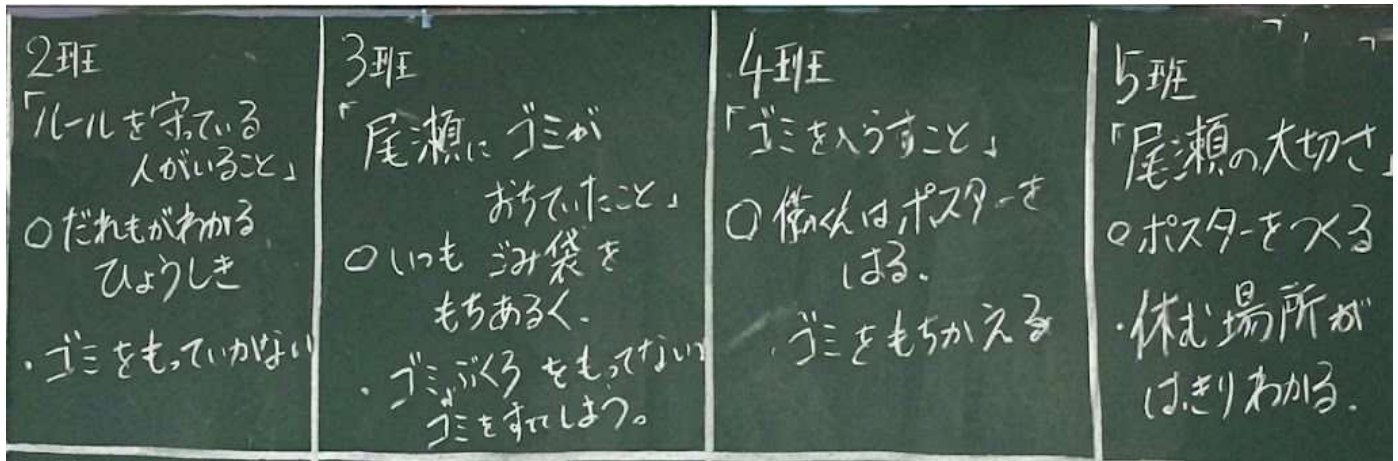 2班
「ルールを守っている
人がいること」
○だれもがわかる
ひょうしき
・ゴミをもっていかない
3班
「尾瀬にゴミが
おちていたこと」
○いつもごみ袋を
もちあるく.
・ゴミぶくろをもってない
ゴミをすててしまう。
4班
「ゴミをへらすこと」
○ はポスターを
はる.
・ゴミをもちかえる
5班
「尾瀬の大切さ」
○ポスターをつくる
・休む場所が
はっきりわかる.